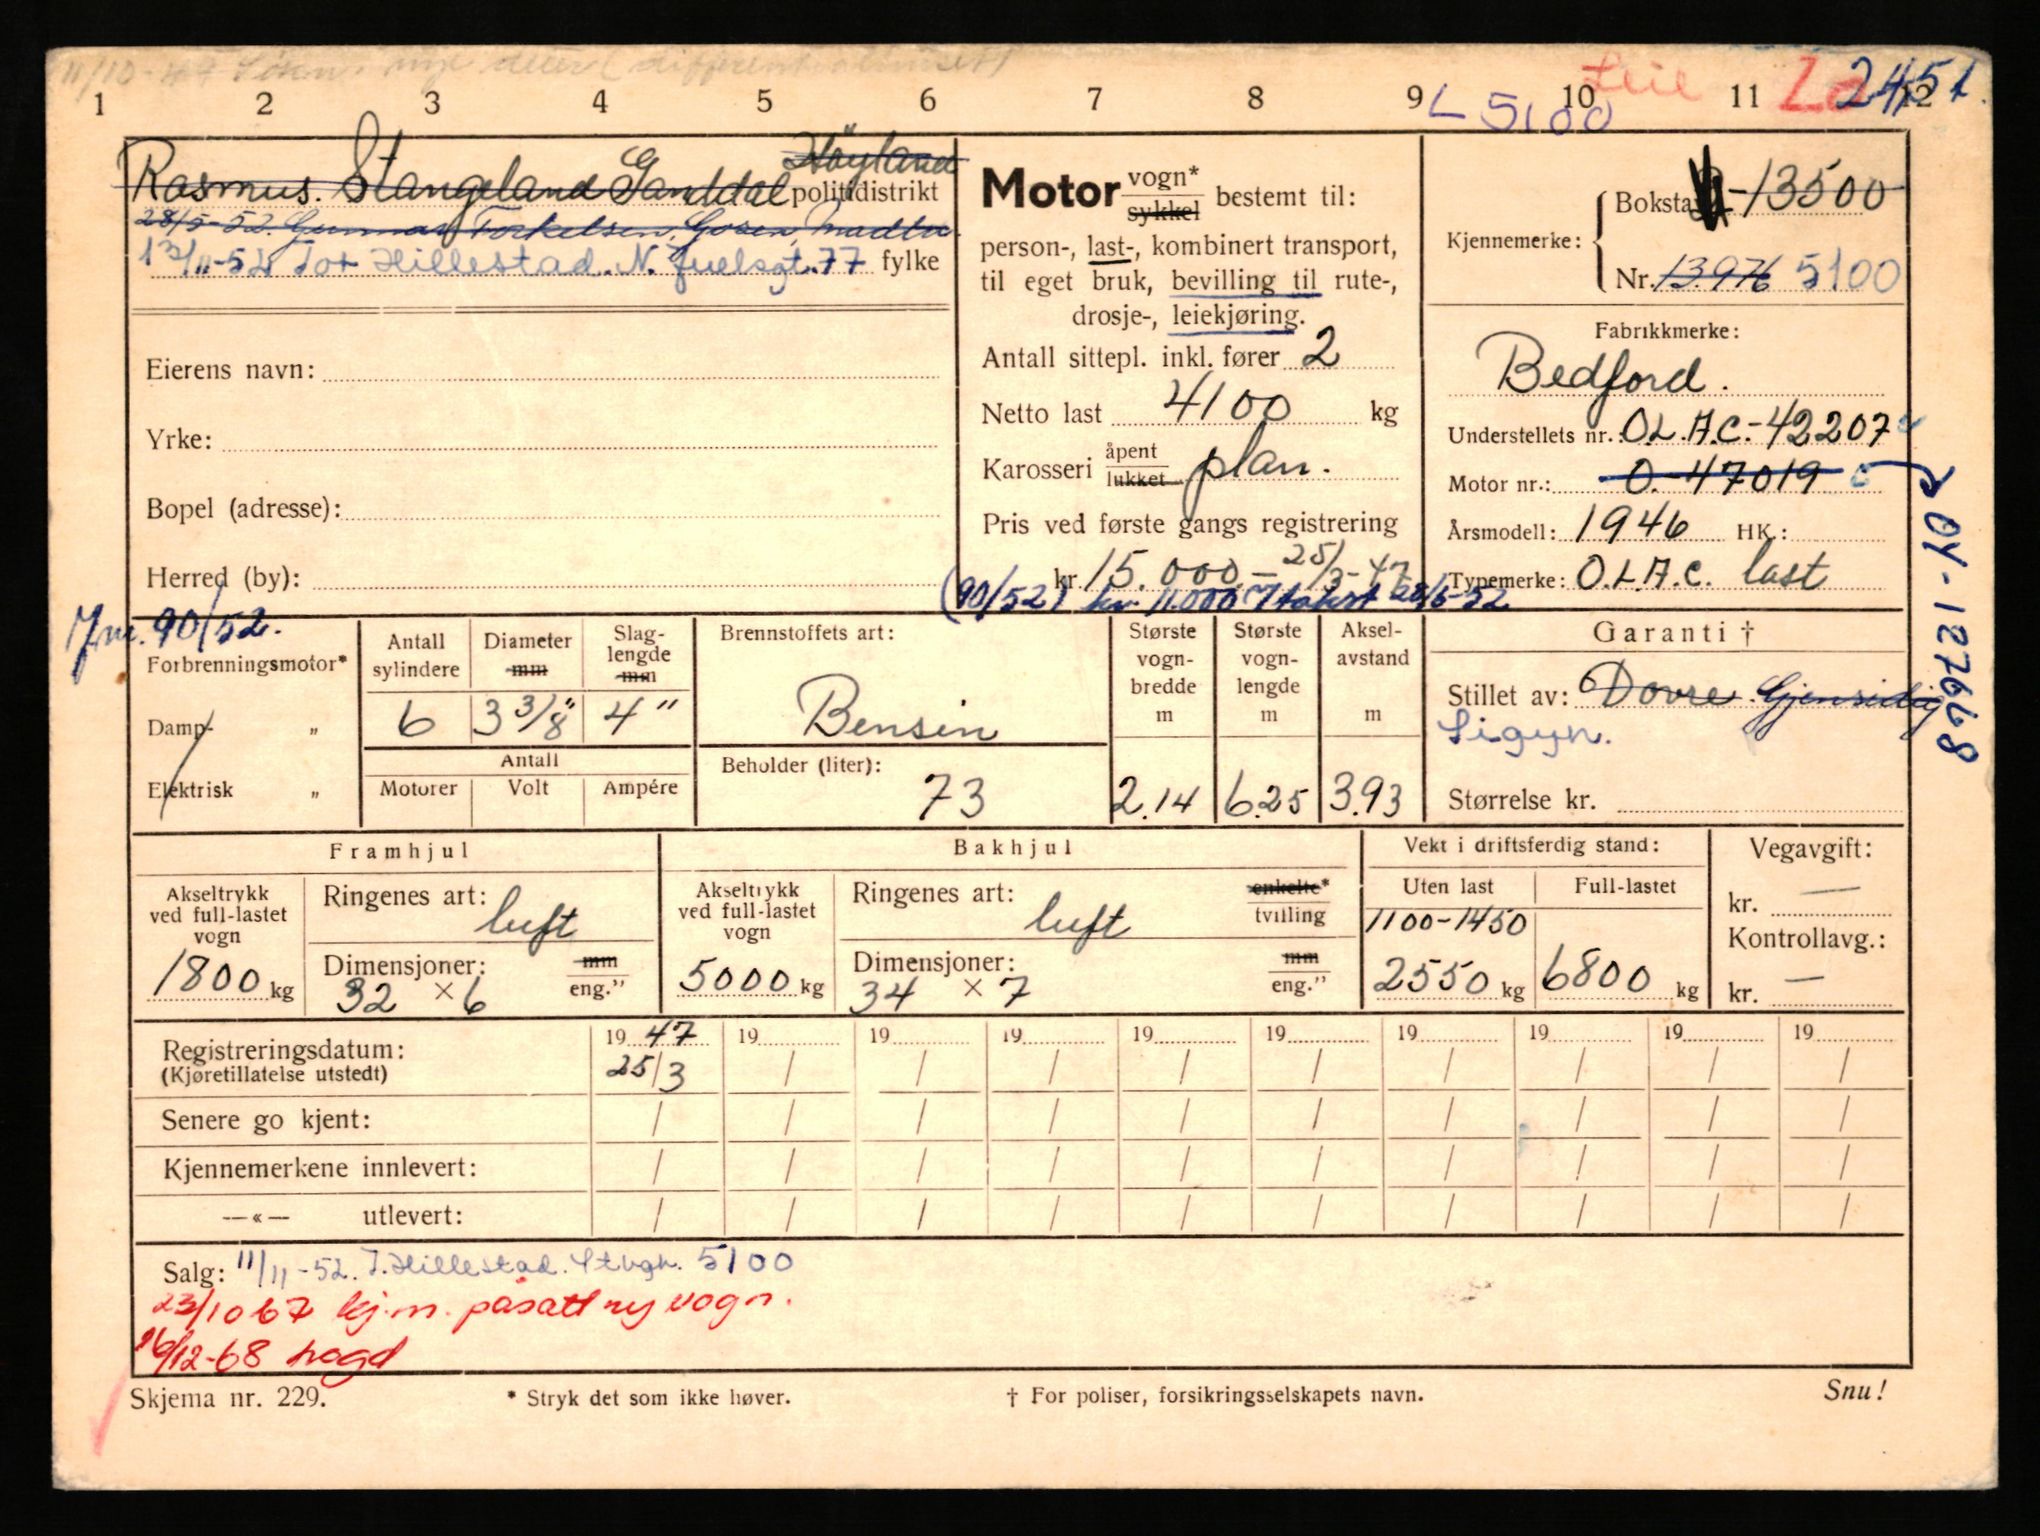 11/10-49
1 2 3 4 5 6 7 8 9 10 11 12
Leie
L 5100
2451
Rasmus. Stangeland Ganddal Höyland politidistrikt
28/5-52. Gunnar Torkelsen, Gosen, Madla
13/11-52 Tor Hillestad. N. Juelsgt. 77 fylke
Eierens navn:
Yrke:
Bopel (adresse):
Herred (by):
Motor vogn* sykkel bestemt til:
person-, last-, kombinert transport,
til eget bruk, bevilling til rute-,
drosje-, leiekjøring.
Antall sittepl. inkl. fører 2
Netto last 4100 kg
Karosseri åpent lukket plan.
Pris ved første gangs registrering
kr. 15.000.- 25/3-47
(90/52) kr. 11.000 takst 28/5-52
Kjennemerke:
Bokstav -13500
Nr. 13.976 5100
Fabrikkmerke:
Bedford.
Understellets nr.: O.L.A.C.-42207
Motor nr.: O.-47019
OY-127668
Årsmodell: 1946 HK.:
Typemerke: O.L.A.C. last
Jnr. 90/52.
Forbrenningsmotor*
Damp- "
Elektrisk "
Antall sylindere 6
Diameter mm 3 3/8"
Slaglengde mm 4"
Antall
Motorer Volt Ampére
Brennstoffets art:
Bensin
Beholder (liter):
73
Største vogn-bredde m 2.14
Største vogn-lengde m 6.25
Aksel-avstand m 3.93
Garanti †
Stillet av: Dovre Gjensidig
Sigyn.
Størrelse kr.
Framhjul
Akseltrykk ved full-lastet vogn
1800 kg
Ringenes art: luft
Dimensjoner: mm eng."
32 × 6
Bakhjul
Akseltrykk ved full-lastet vogn
5000 kg
Ringenes art: luft enkelte* tvilling
Dimensjoner: mm eng."
34 × 7
Vekt i driftsferdig stand:
Uten last Full-lastet
1100-1450
2550 kg 6800 kg
Vegavgift:
kr. —
Kontrollavg.:
kr. —
Registreringsdatum: 19 47 19 19 19 19 19 19 19 19 19
(Kjøretillatelse utstedt) 25/3 / / / / / / / / /
Senere go kjent: / / / / / / / / / /
Kjennemerkene innlevert: / / / / / / / / / /
—«— utlevert: / / / / / / / / / /
Salg: 11/11-52. T. Hillestad. Stvgr. 5100
23/10 67 kj.m. påsatt ny vogn.
16/12-68 hogd
Skjema nr. 229.
* Stryk det som ikke høver.
† For poliser, forsikringsselskapets navn.
Snu!